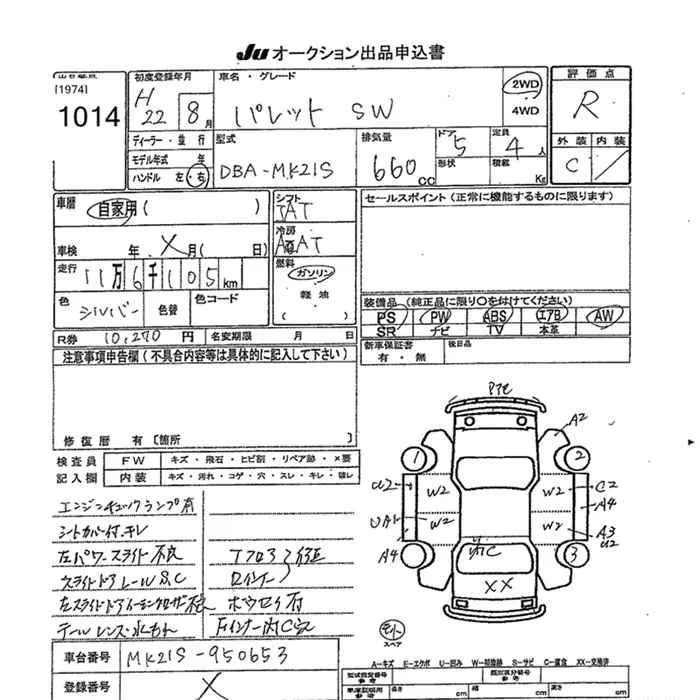 JU オークション出品申込書
[1974]
1014
初度登録年月
H 22 8月
車名・グレード
パレット SW
2WD
4WD
評価点
R
ディーラー・並行
モデル年式 年
ハンドル 左・右
型式
DBA-MK21S
排気量
660 CC
ドア 5
形状
定員 4人
積載 Kg
外装 内装
C /
車歴
自家用 ( )
シフト
IAT
冷房
AAT
セールスポイント (正常に機能するものに限ります)
車検 年 X 月 ( 日)
走行
11万6千105km
燃料
ガソリン
軽油
( )
色
シルバー
色替
色コード
装備品 (純正品に限り○を付けてください)
PS PW ABS エアB AW
SR ナビ TV 本革
R券 10,270円
名変期限 月 日
新車保証書
有・無
後日品
注意事項申告欄 (不具合内容等は具体的に記入して下さい)
修復歴 有 [箇所 ]
検査員
記入欄
FW
キズ・飛石・ヒビ割・リペア跡・×要
内装
キズ・汚れ・コゲ・穴・スレ・キレ・破レ
エンジンチェックランプ有
シートカバー付、キレ
左パワースライド不良
スライドドアレールS,C
テールレンズ・水もれ
A2
1
2
U2
W2
W2
C2
A4
UA1
W2
W2
A3
U2
A4
3
XX
スペア
A-キズ E-エクボ U-凹み W-補修跡 S-サビ C-腐食 XX-交換済
車台番号
MK21S-950653
登録番号
X
参考
長さ cm
幅 cm
高さ cm